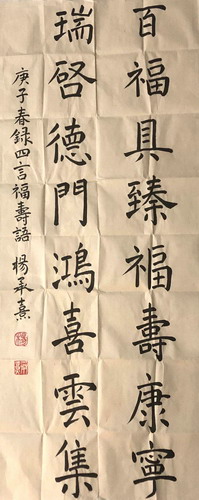 百福具臻福壽康寧
瑞啓德門鴻喜雲集
庚子春録四言福壽語 楊承熹